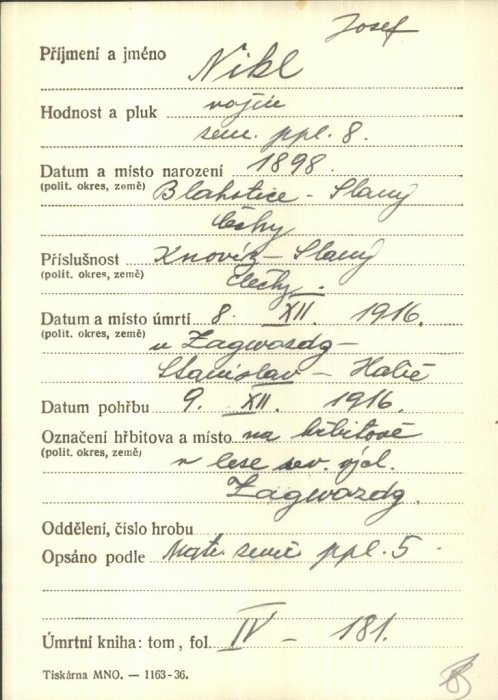 Josef
Příjmení a jméno Nikl
Hodnost a pluk vojín
zem. ppl. 8.
Datum a místo narození 1898.
(polit. okres, země) Blahotice - Slaný
Čechy
Příslušnost Knovíz - Slaný
(polit. okres, země) Čechy.
Datum a místo úmrtí 8. XII. 1916.
(polit. okres, země) u Zagwozdg -
Stanislav - Halič
Datum pohřbu 9. XII. 1916.
Označení hřbitova a místo na hřbitově
(polit. okres, země) v lese sev. vých.
Zagwozdg.
Oddělení, číslo hrobu
Opsáno podle Matr. ppl. 5
Úmrtní kniha: tom, fol. IV - 181.
Tiskárna MNO. — 1163-36.